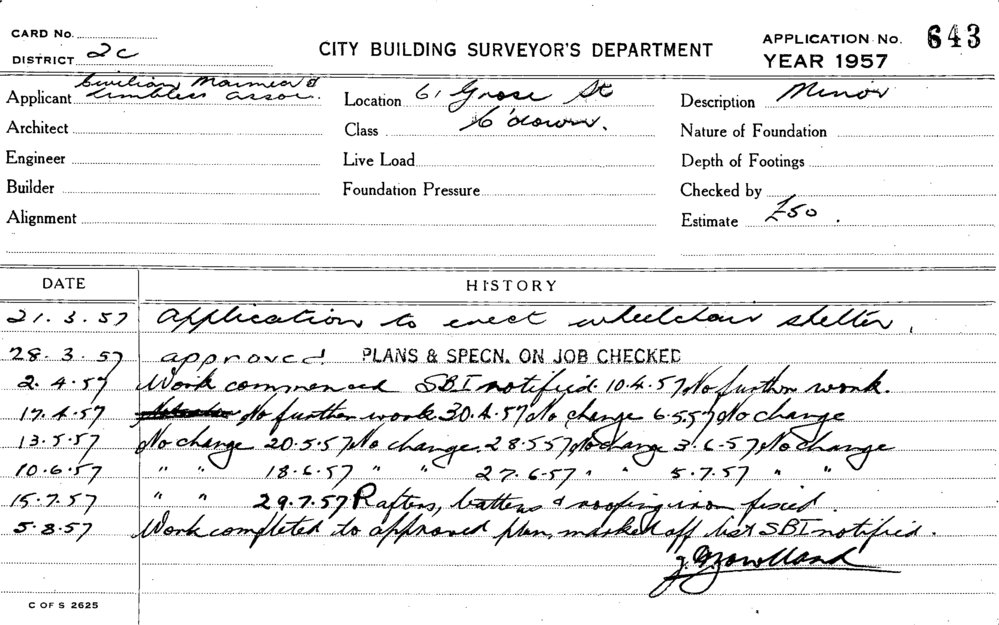 CARD No.
DISTRICT 2c
CITY BUILDING SURVEYOR'S DEPARTMENT
APPLICATION No. 643
YEAR 1957
Applicant Civilian Maimed &
Limbless Assoc.
Location 61 Grose St
Description Minor
Architect
Class C'down.
Nature of Foundation
Engineer
Live Load
Depth of Footings
Builder
Foundation Pressure
Checked by
Alignment
Estimate £50.
DATE
HISTORY
21.3.57 Application to erect wheelchair shelter.
28.3.57 approved PLANS & SPECN. ON JOB CHECKED
2.4.57 Work commenced SBI notified. 10.4.57 No further work.
17.4.57 No further work 30.4.57 No change 6.5.57 No change
13.5.57 No change 20.5.57 No change. 28.5.57 No change 3.6.57 No change
10.6.57 " " 18.6.57 " " 27.6.57 " " 5.7.57 " "
15.7.57 " " 29.7.57 Rafters, battens & roofing iron fixed.
5.8.57 Work completed to approved plan, marked off list SBI notified.
C OF S 2625